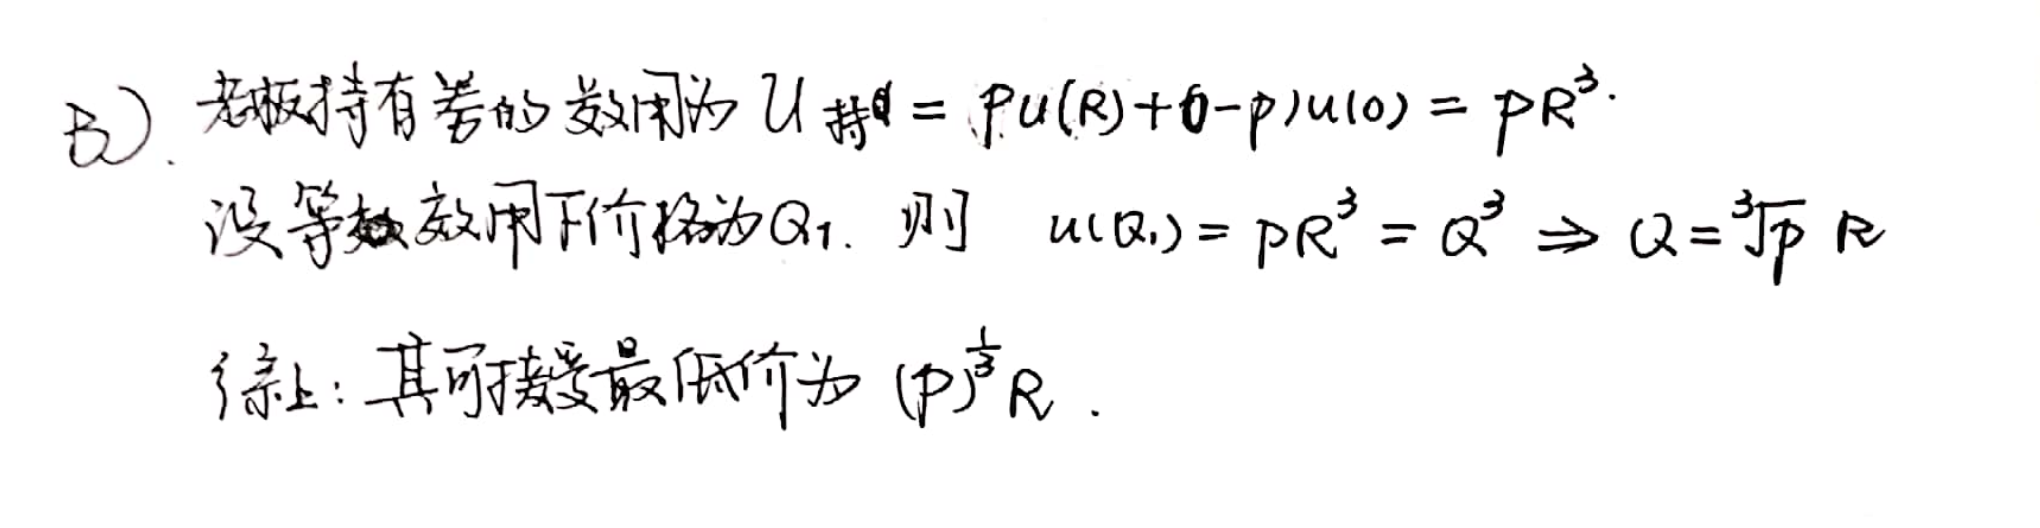 B). 老板持有券的效用为 U持 = pu(R)+(1-p)u(0) = pR³.
设等效用下价格为Q₁. 则 u(Q₁) = pR³ = Q³ ⇒ Q = ∛p R
综上: 其可接受最低价为 (p)^{1/3} R .